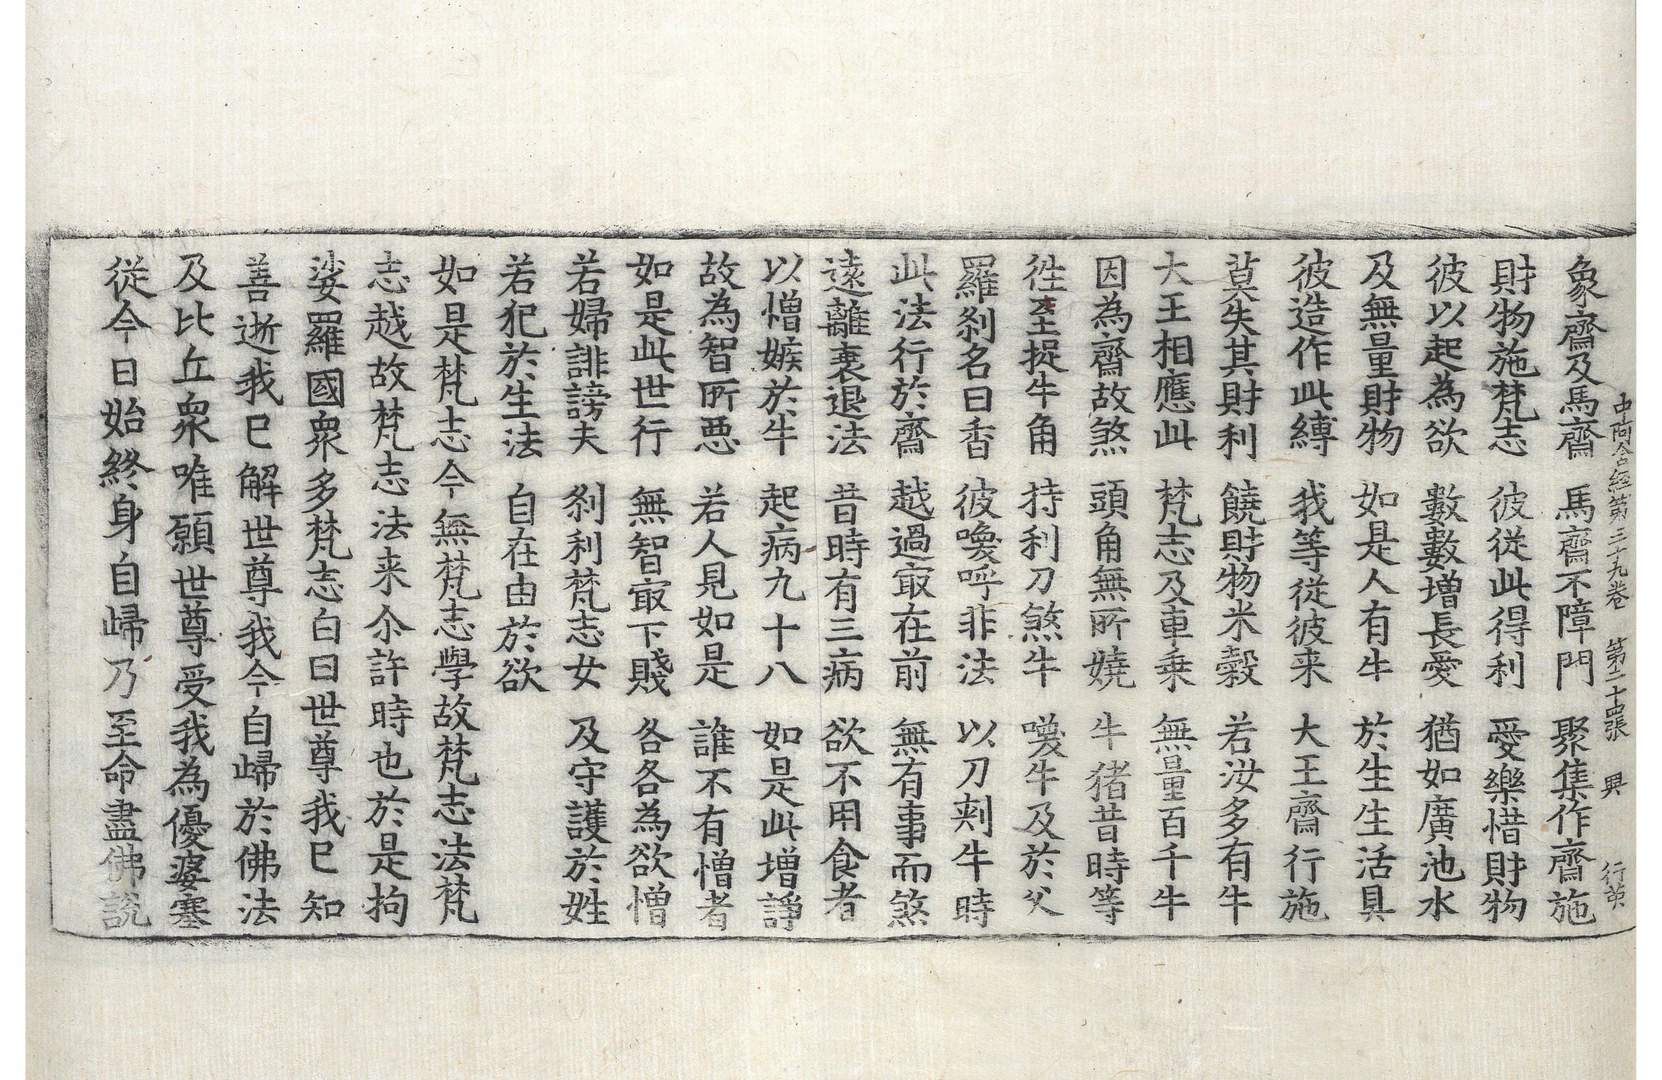 中阿含經第三十九卷 第二十四張 興 行英
象齋及馬齋 馬齋不障門 聚集作齋施
財物施梵志 彼從此得利 愛樂惜財物
彼以起為欲 數數增長愛 猶如廣池水
及無量財物 如是人有牛 於生生活具
彼造作此縛 我等從彼来 大王齋行施
莫失其財利 饒財物米穀 若汝多有牛
大王相應此 梵志及車乗 無量百千牛
因為齋故煞 頭角無所嬈 牛猪昔時等
徃至捉牛角 持利刀煞牛 喚牛及於父
羅刹名曰香 彼喚呼非法 以刀刾牛時
此法行於齋 越過㝡在前 無有事而煞
遠離衰退法 昔時有三病 欲不用食者
以憎嫉於牛 起病九十八 如是此增諍
故為智所悪 若人見如是 誰不有憎者
如是此世行 無智㝡下賤 各各為欲憎
若婦誹謗夫 刹利梵志女 及守護於姓
若犯於生法 自在由於欲
如是梵志今無梵志學故梵志法梵
志越故梵志法来尒許時也於是拘
娑羅國衆多梵志白曰世尊我已知
善逝我已解世尊我今自歸於佛法
及比丘衆唯願世尊受我為優婆塞
從今日始終身自歸乃至命盡佛說